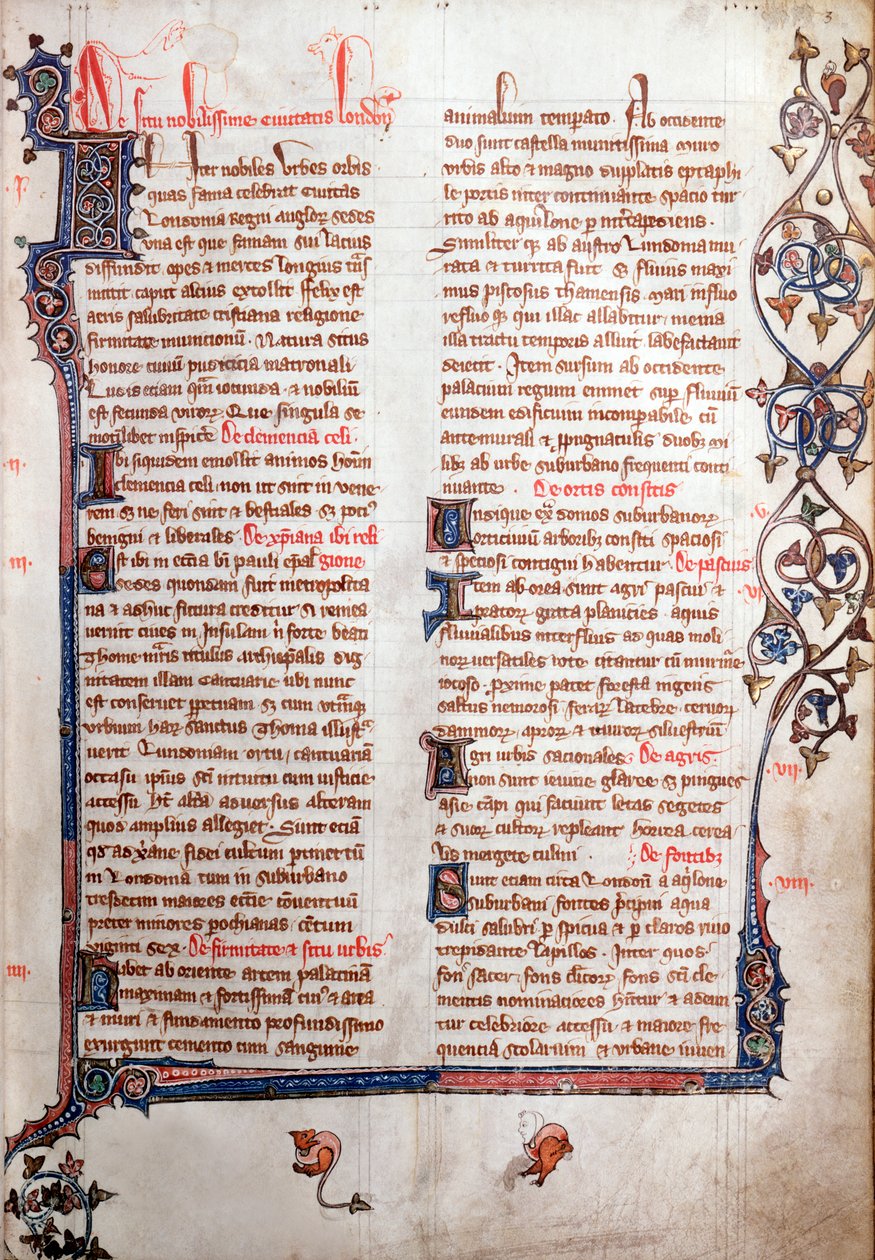 3
De situ nobilissime Ciuitatis London̄
.i.
Inter nobiles vrbes orbis
quas fama celebrat Ciuitas
Londonia Regni Anglorꝝ sedes
vna est que famam sui lacius
diffundit opes ⁊ merces longius t̄ns
mittit caput alcius extollit ffelix est
aeris salubritate cristiana religione
firmitate municionū . Natura situs
honore ciuiū pudicicia matronali
Ludis eciam qm̄ iocunda . ⁊ nobiliū
est fecunda virorꝝ Que singula se
motī libet inspice᷑ De clemencia celi .
.ii.
Ibi siquidem emollit animos hoīm
clemencia celi . non ut sint in vene
rem sꝫ ne feri sint ⁊ bestiales sꝫ poci᷒
benigni ⁊ liberales . De xp̄iana ibi reli
gione
.iii.
Est ibi in eccīa bī pauli ep̄alꝭ
sedes quondam fuit metropolita
na ⁊ adhuc futura creditur si remea
uerint ciues in Insulam n̄ forte beati
Thome m̄ris titulus Archiep̄alis dig
nitatem illam Cantuarie ubi nunc
est conseruet ꝑpetuam sꝫ cum vtramqꝫ
vrbium harꝫ sanctus Thoma illust͛
uerit Lundoniam ortu . cantuariā
occasu ip̄ius sc̄i intuitu cum iusticie
accessu ht̄ alt͛a aduersus alteram
quod amplius alleget . Sunt eciā
qd̄ ad x̄ane fidei cultum ꝑtinet tū
in Londonia tum in suburbano
tresdecim maiores eccīe conuentuū
preter minores ꝑochianas . Centum
viginti sex . De firmitate ⁊ situ urbis
.iiii.
Habet ab oriente artem palacinā
maximam ⁊ fortissimā cui᷒ ⁊ area
⁊ muri ⁊ fundamento profundissimo
exurgunt cemento cum sanguine
animalium temperato . Ab occidente
duo sunt castella munitissima muro
vrbis alto ⁊ magno duplatis eptaphi
le portis intercontinuante spacio tur
rito ab aquilone ꝑ int͛capediens .
Similiter qꝫ ab austro Lundonia mu
rata ⁊ turrita fuit sꝫ fluuius maxi
mus piscosus Thamensis . mari influo
refluo qꝫ qui illac allabitur . menia
illa tractu temporis alluit labefactauit
deiecit . Item sursum ab occidente
palacium regium eminet suꝑ fluuiū
eundem edificium incomꝑabile cū
antemurali ⁊ ꝓpugnaculis duobꝫ mi
libꝫ ab urbe suburbano frequenti conti
nuante . De ortis consitis
.v.
Undique ex͛ domos suburbanorꝝ
orti ciuium arboribꝫ consiti spaciosi
⁊ speciosi contigui habentur . De pascuis
.vi.
Item ab borea sunt agri pascui ⁊
pratorꝝ grata planicies . aquis
fluuialibus interfluis ad quas moli
norꝝ uersatiles rote citantur cū murmꝛe
iocoso . Proxime patet foresta ingens
saltus nemorosi ferarꝝ latebre . ceruorꝝ
dammorꝝ aprorꝝ ⁊ taurorꝝ siluestriū
.vii.
Agri urbis sacionales De agris .
non sunt ieiune glaree sꝫ pingues
asie cāpi qui faciunt letas segetes
⁊ suorꝝ cultorꝝ repleant horrea cerea
lis mergete culmi . De fontibꝫ
.viii.
Sunt eciam circa London̄ a aq̄lone
suburbani fontes p̄cipui aqua
dulci salubri ꝑspicua ⁊ ꝑ claros riuo
trepidante lapillos . Inter quos
fons sacer . fons cl̄icorꝝ fons sc̄i cle
mentis nominaciores hn̄tur ⁊ adeun
tur celebriore accessu ⁊ maiore fre
quencia scolarium ⁊ vrbane iuuen